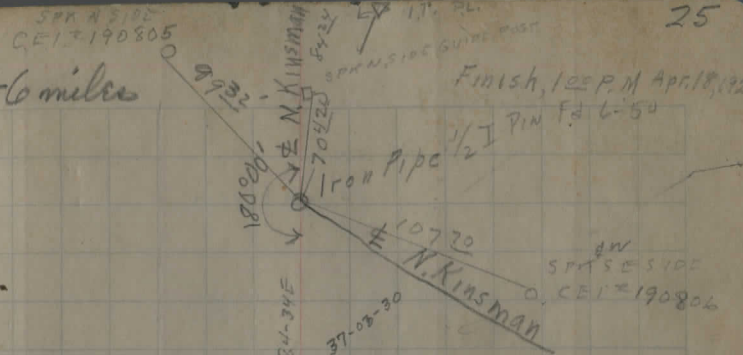 SPK N SIDE
C.E.I. 190805
25
6 miles
99 32
₵ N. Kinsman
54 34
SPK N. SIDE GUIDE POST
Finish, 1 00 P.M Apr. 18, 192
1/2 I PIN Fd 6-50
70 4 20
Iron Pipe
180°00'
107 70
₵ N. Kinsman
SPK S E SIDE
C.E.I. 190806
34-34E
37-03-30